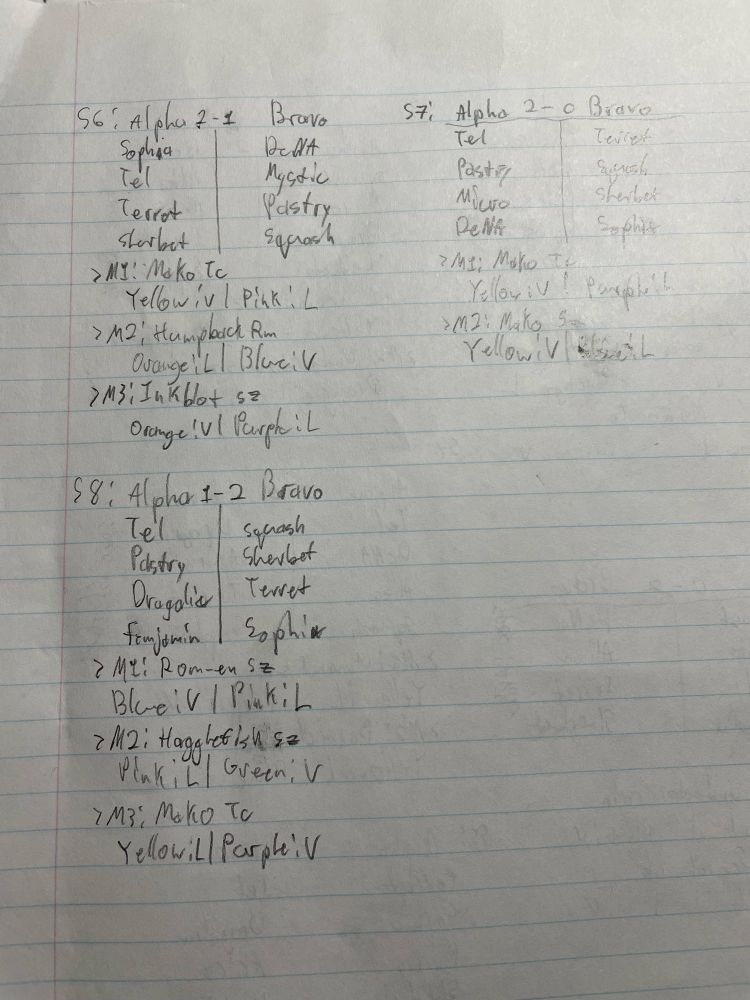 S6: Alpha 2-1 Bravo
Sophia | DeNA
Tel | Mystic
Terret | Pastry
Sherbet | Squash
>M1: Mako Tc
Yellow:V | Pink:L
>M2: Humpback Rm
Orange:L | Blue:V
>M3: Inkblot sz
Orange:V | Purple:L
S7: Alpha 2-0 Bravo
Tel | Terret
Pastry | Squash
Micro | Sherbet
DeNA | Sophia
>M1: Mako Tc
Yellow:V | Purple:L
>M2: Mako Sz
Yellow:V | :L
S8: Alpha 1-2 Bravo
Tel | Squash
Pastry | Sherbet
Dragalier | Terret
fomjamin | Sophia
>M1: Rom-en sz
Blue:V | Pink:L
>M2: Hagglefish sz
Pink:L | Green:V
>M3: Mako Tc
Yellow:L | Purple:V